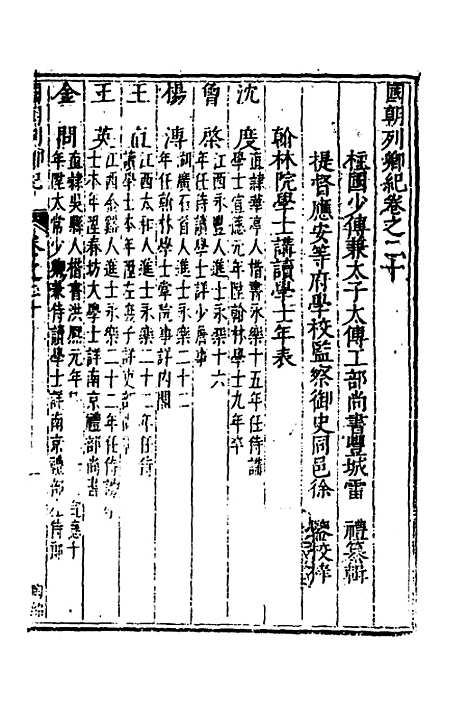 國朝列卿紀卷之二十
柱國少傅兼太子太傅工部尚書豐城雷 禮纂輯
提督應安等府學校監察御史同邑徐 鑒校梓
翰林院學士講讀學士年表
沈度 直隸華亭人楷書永樂十五年任侍講
學士宣德元年陞翰林學士九年卒
曾棨 江西永豐人進士永樂十六
年任侍讀學士詳少詹事
楊溥 湖廣石首人進士永樂二十二
年任翰林學士掌院事詳內閣
王直 江西太和人進士永樂二十二年任侍
讀學士本年陞左庶子詳吏
王英 江西金谿人進士永樂二十二年任侍講
士本年陞春坊大學士詳南京禮部尚書
金問 直隸吳縣人楷書洪熙元年 宣德十
年陞太常少卿兼侍讀學士詳南京禮部 侍郎
國朝列卿紀 卷之二十 一